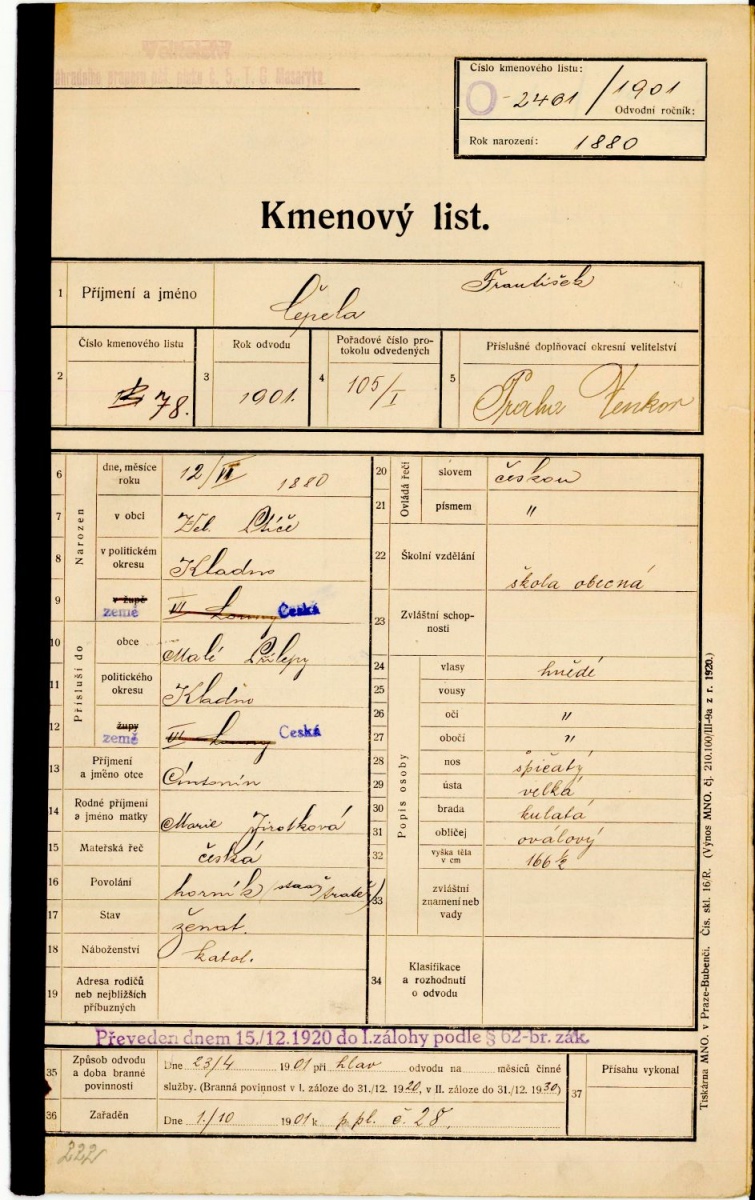 Velitelství
náhradního praporu pěš. pluku č. 5, T. G. Masaryka.
Číslo kmenového listu:
O - 2461 / 1901
Odvodní ročník:
Rok narození: 1880
Kmenový list.
1 Příjmení a jméno Čepela František
Číslo kmenového listu
2 78.
Rok odvodu
3 1901.
Pořadové číslo protokolu odvedených
4 105/I
Příslušné doplňovací okresní velitelství
5 Praha Venkov
Narozen
6 dne, měsíce roku 12/VI 1880
7 v obci Vel.
8 v politickém okresu Kladno
9 v župě země VI Louny Česká
Přísluší do
10 obce Malé Přílepy
11 politického okresu Kladno
12 župy země VI Louny Česká
13 Příjmení a jméno otce Antonín
14 Rodné příjmení a jméno matky Marie Jirotková
15 Mateřská řeč česká
16 Povolání horník
17 Stav ženat.
18 Náboženství katol.
19 Adresa rodičů neb nejbližších příbuzných
Ovládá řeči
20 slovem českou
21 písmem "
22 Školní vzdělání škola obecná
23 Zvláštní schopnosti
Popis osoby
24 vlasy hnědé
25 vousy
26 oči "
27 obočí "
28 nos špičatý
29 ústa velká
30 brada kulatá
31 obličej oválový
32 vyška těla v cm 166½
33 zvláštní znamení neb vady
34 Klasifikace a rozhodnutí o odvodu
Převeden dnem 15./12.1920 do I.zálohy podle § 62-br. zák.
35 Způsob odvodu a doba branné povinnosti
Dne 23/4 1901 při hlav odvodu na měsíců činné
služby. (Branná povinnost v I. záloze do 31./12. 1920, v II. záloze do 31./12. 1930)
36 Zařaděn Dne 1./10 1901 k p. pl. č. 28.
37 Přísahu vykonal
222
Tiskárna MNO. v Praze-Bubenči. Čís. skl. 16/R. (Výnos MNO. čj. 210.100/III-9a z r. 1920.)